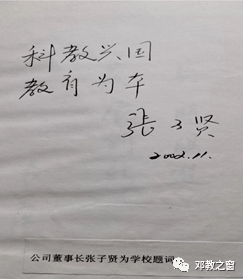 科教兴国
教育为本
張子贤
2002.11.
公司董事长张子贤为学校题词
邓教之窗